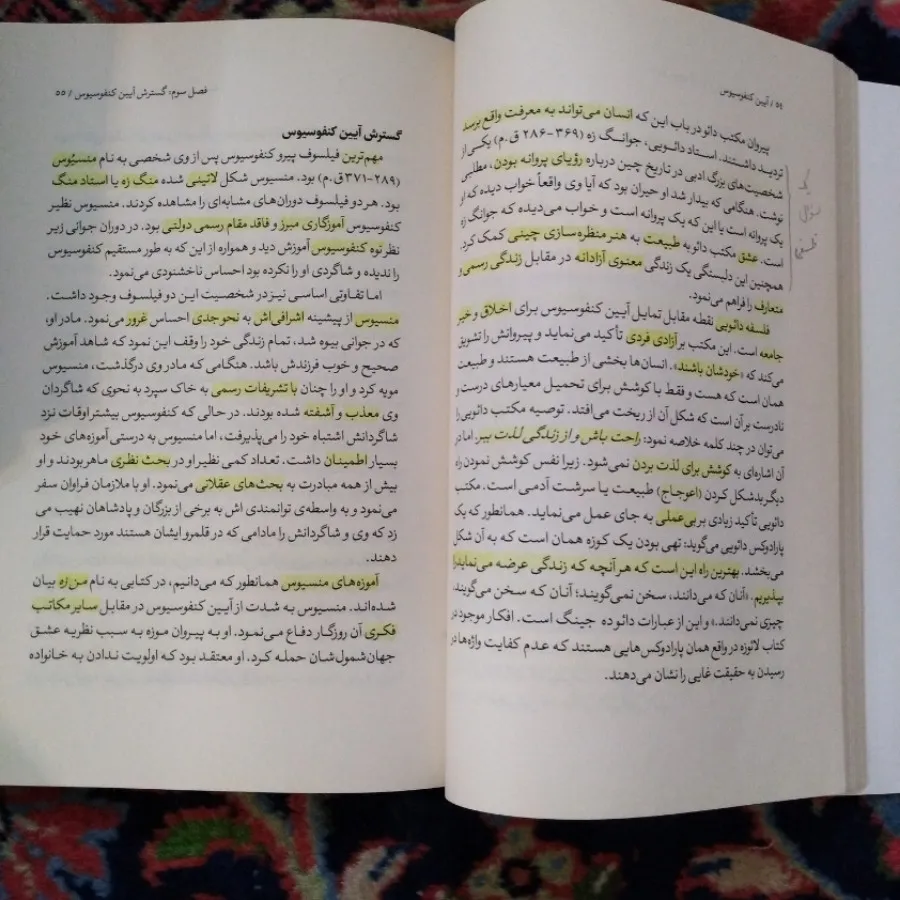 ۵۴ / آیین کنفوسیوس
پیروان مکتب دائو در باب این که انسان می‌تواند به معرفت واقع برسد
تردید داشتند. استاد دائویی، جوانگ زه (۳۶۹-۲۸۶ ق.م) یکی از
شخصیت‌های بزرگ ادبی در تاریخ چین درباره رؤیای پروانه بودن، مطلبی
نوشت. هنگامی که بیدار شد او حیران بود که آیا وی واقعاً خواب دیده که او
یک پروانه است یا این که یک پروانه است و خواب می‌دیده که جوانگ زه
است. عشق مکتب دائو به طبیعت به هنر منظره‌سازی چینی کمک کرد.
همچنین این دلبستگی یک زندگی معنوی آزادانه در مقابل زندگی رسمی و
متعارف را فراهم می‌نمود.
فلسفه دائویی نقطه مقابل تمایل آیین کنفوسیوس برای اخلاق و خیر
جامعه است. این مکتب بر آزادی فردی تأکید می‌نماید و پیروانش را تشویق
می‌کند که «خودشان باشند». انسان‌ها بخشی از طبیعت هستند و طبیعت
همان است که هست و فقط با کوشش برای تحمیل معیارهای درست و
نادرست بر آن است که شکل آن از ریخت می‌افتد. توصیه مکتب دائویی را
می‌توان در چند کلمه خلاصه نمود: راحت باش و از زندگی لذت ببر. اما در
آن اشاره‌ای به کوشش برای لذت بردن نمی‌شود. زیرا نفس کوشش نمودن راه
دیگر بدشکل کردن (اعوجاج) طبیعت یا سرشت آدمی است. مکتب
دائویی تأکید زیادی بر بی‌عملی به جای عمل می‌نماید. همانطور که یک
پارادوکس دائویی می‌گوید: تهی بودن یک کوزه همان است که به آن شکل
می‌بخشد. بهترین راه این است که هر آنچه که زندگی عرضه می‌نماید را
بپذیریم. «آنان که می‌دانند، سخن نمی‌گویند؛ آنان که سخن می‌گویند،
چیزی نمی‌دانند.» و این از عبارات دائوده جینگ است. افکار موجود در
کتاب لائوزه در واقع همان پارادوکس‌هایی هستند که عدم کفایت واژه‌ها در
رسیدن به حقیقت غایی را نشان می‌دهند.
یک
سؤال
فصل سوم: گسترش آیین کنفوسیوس // ۵۵
گسترش آیین کنفوسیوس
مهم‌ترین فیلسوف پیرو کنفوسیوس پس از وی شخصی به نام منسیُوس
(۲۸۹-۳۷۱ق.م) بود. منسیوس شکل لاتینی شده منگ زه یا استاد منگ
بود. هر دو فیلسوف دوران‌های مشابه‌ای را مشاهده کردند. منسیوس نظیر
کنفوسیوس آموزگاری مبرز و فاقد مقام رسمی دولتی بود. در دوران جوانی زیر
نظر نوه کنفوسیوس آموزش دید و همواره از این که به طور مستقیم کنفوسیوس
را ندیده و شاگردی او را نکرده بود احساس ناخشنودی می‌نمود.
اما تفاوتی اساسی نیز در شخصیت این دو فیلسوف وجود داشت.
منسیوس از پیشینه اشرافی‌اش به نحو جدی احساس غرور می‌نمود. مادر او،
که در جوانی بیوه شد، تمام زندگی خود را وقف این نمود که شاهد آموزش
صحیح و خوب فرزندش باشد. هنگامی که مادر وی درگذشت، منسیوس
مویه کرد و او را چنان با تشریفات رسمی به خاک سپرد به نحوی که شاگردان
وی معذب و آشفته شده بودند. در حالی که کنفوسیوس بیشتر اوقات نزد
شاگردانش اشتباه خود را می‌پذیرفت، اما منسیوس به درستی آموزه‌های خود
بسیار اطمینان داشت. تعداد کمی نظیر او در بحث نظری ماهر بودند و او
بیش از همه مبادرت به بحث‌های عقلانی می‌نمود. او با ملازمان فراوان سفر
می‌نمود و به واسطه‌ی توانمندی اش به برخی از بزرگان و پادشاهان نهیب می
زد که وی و شاگردانش را مادامی که در قلمرو ایشان هستند مورد حمایت قرار
دهند.
آموزه‌های منسیوس همانطور که می‌دانیم، در کتابی به نام من زه بیان
شده‌اند. منسیوس به شدت از آیین کنفوسیوس در مقابل سایر مکاتب
فکری آن روزگار دفاع می‌نمود. او به پیروان موزه به سبب نظریه عشق
جهان‌شمول‌شان حمله کرد. او معتقد بود که اولویت ندادن به خانواده